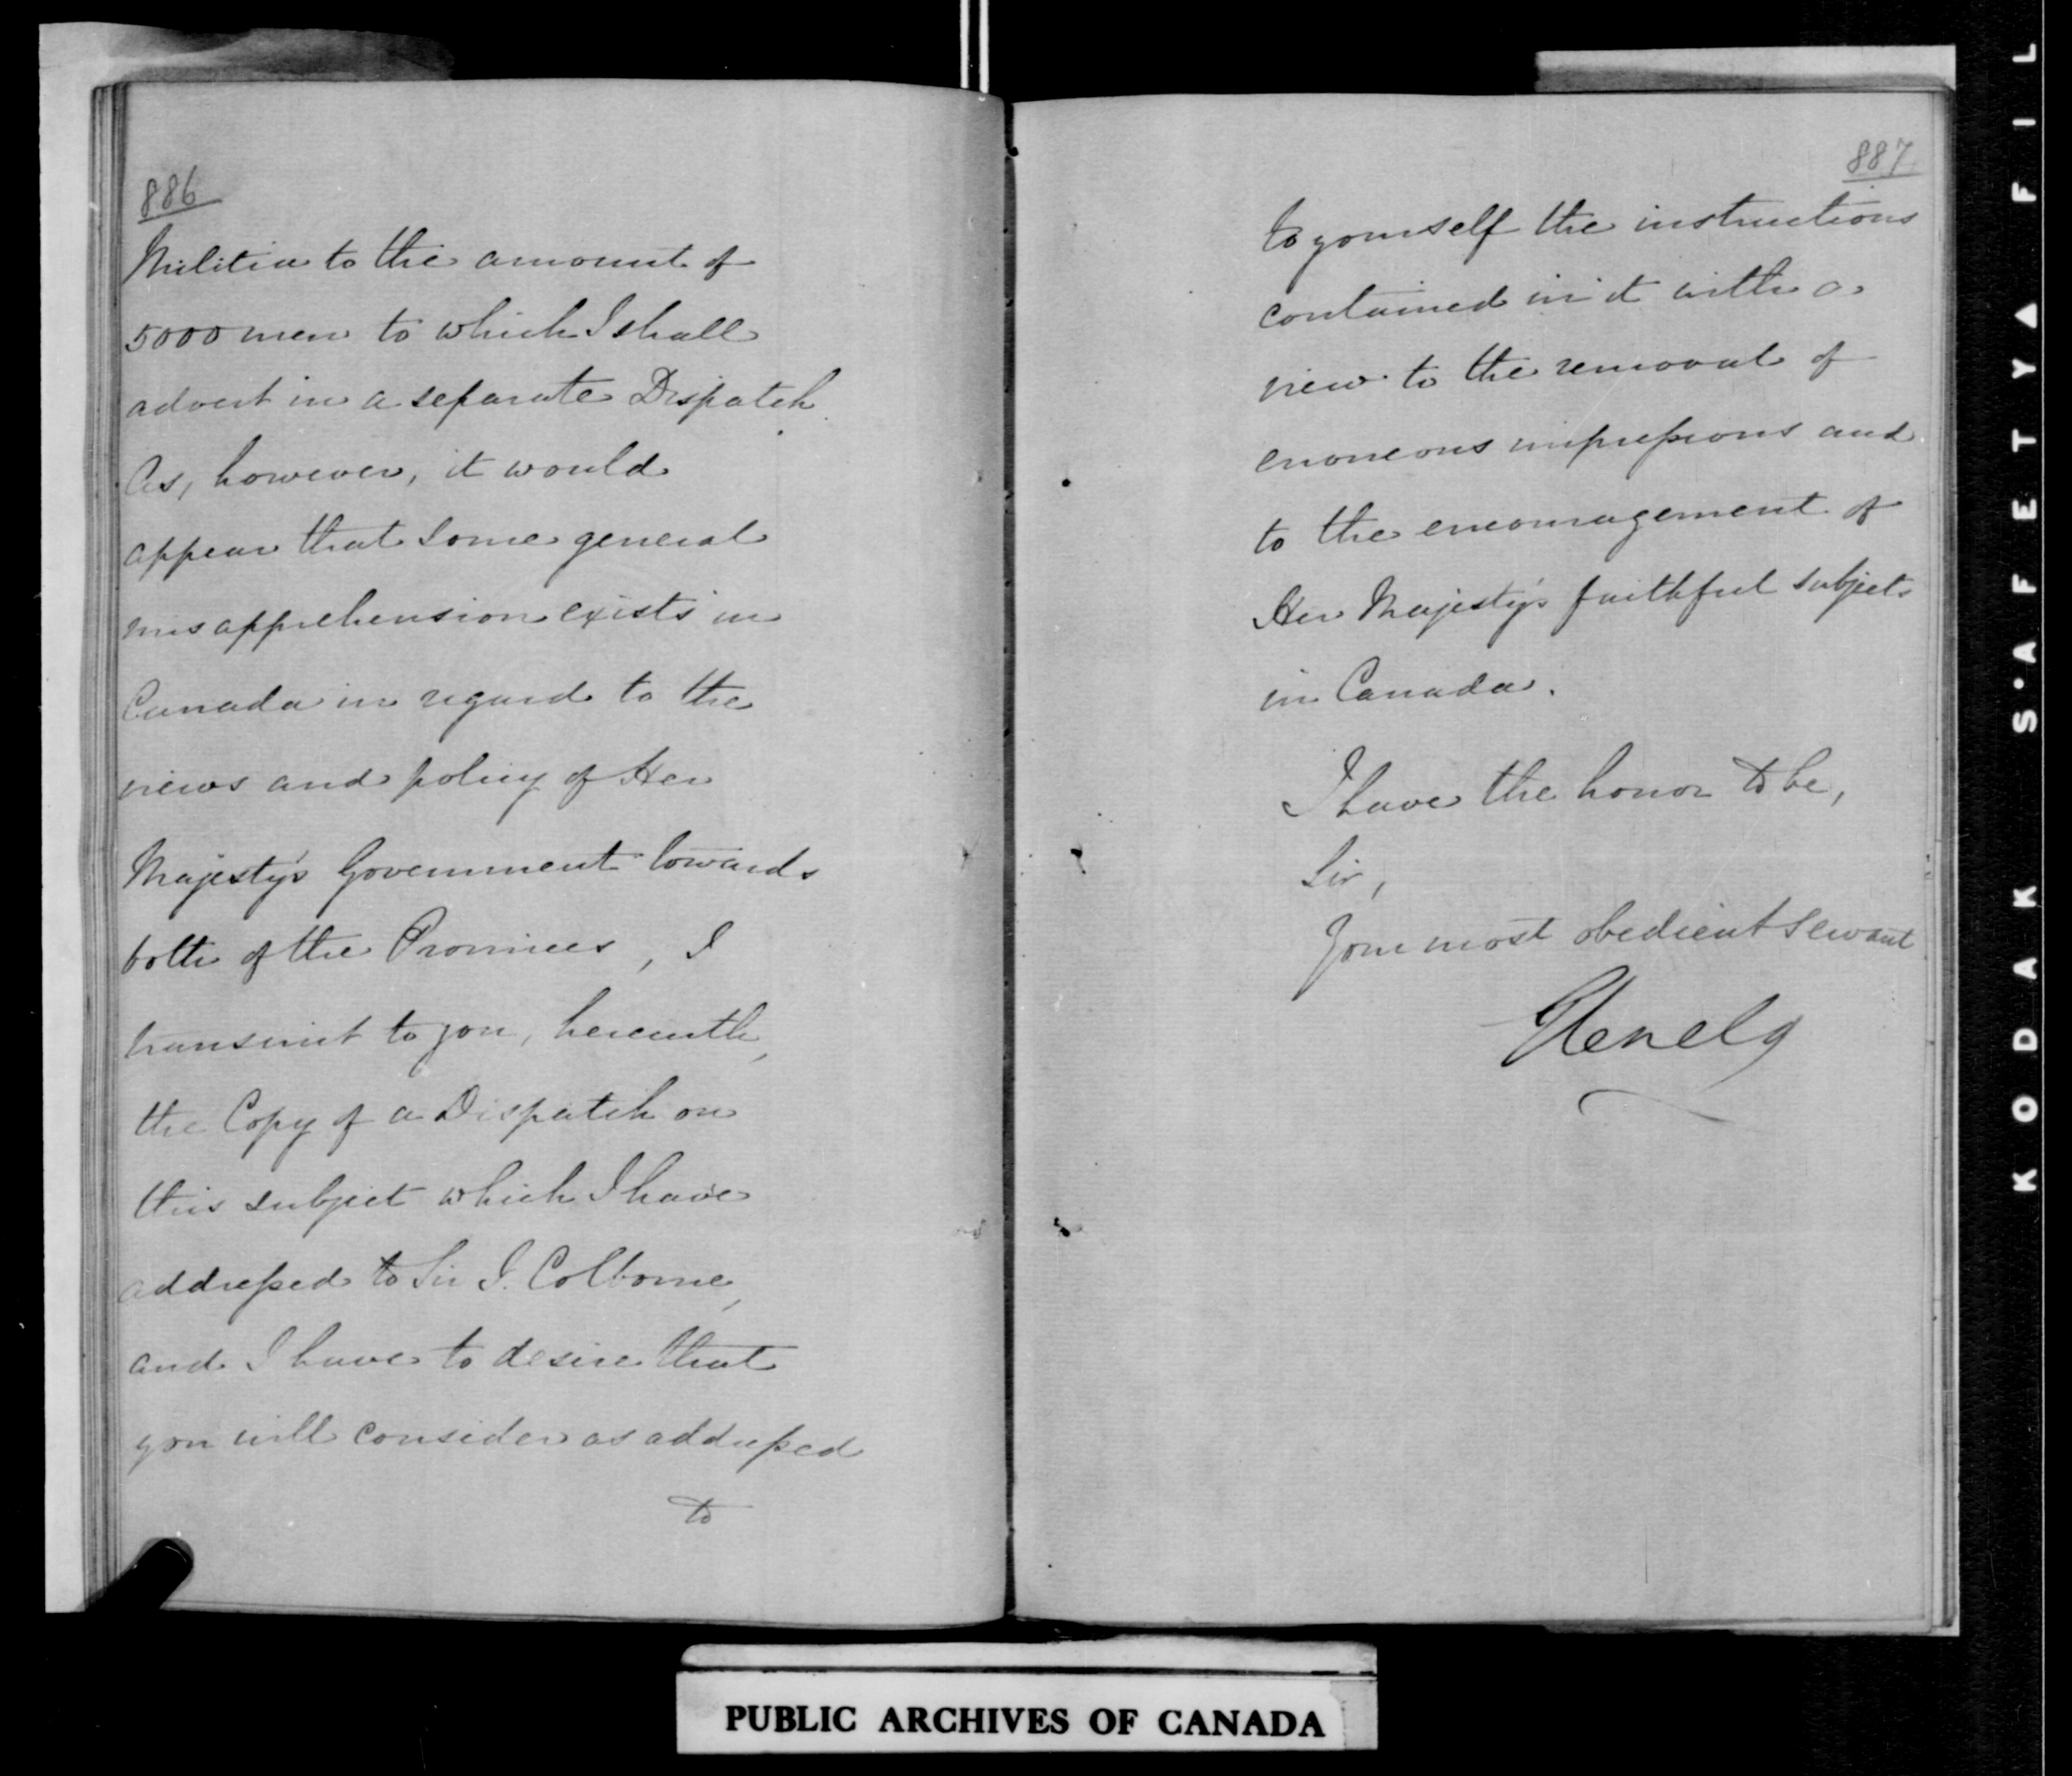 886
Militia to the amount of
5000 men to which I shall
advert in a separate Dispatch.
As, however, it would
appear that some general
misapprehension exists in
Canada in regard to the
views and policy of Her
Majesty's Government towards
both of the Provinces, I
transmit to you, herewith,
the Copy of a Dispatch on
this subject which I have
addressed to Sir J. Colborne,
and I have to desire that
you will consider as addressed
to
887
to yourself the instructions
contained in it with a
view to the removal of
erroneous impressions and
to the encouragement of
Her Majesty's faithful subjects
in Canada.
I have the honor to be,
Sir,
Your most obedient servant
Glenelg
PUBLIC ARCHIVES OF CANADA
KODAK S·AFETY▲FIL